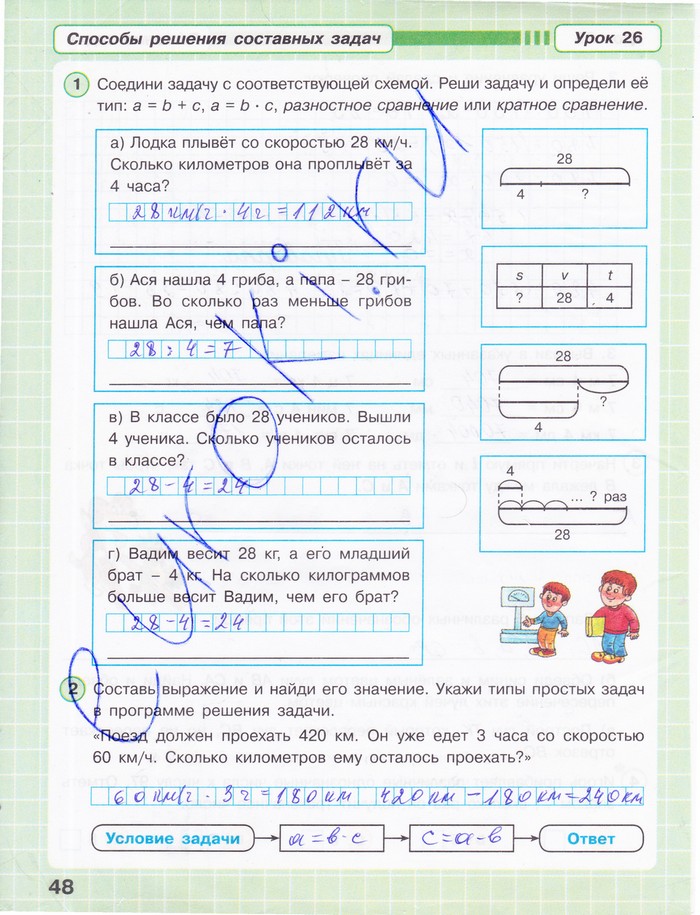 Способы решения составных задач
Урок 26
1 Соедини задачу с соответствующей схемой. Реши задачу и определи её
тип: a = b + c, a = b · c, разностное сравнение или кратное сравнение.
а) Лодка плывёт со скоростью 28 км/ч.
Сколько километров она проплывёт за
4 часа?
28 км/г · 4 г = 112 км
28
4 ?
б) Ася нашла 4 гриба, а папа – 28 гри-
бов. Во сколько раз меньше грибов
нашла Ася, чем папа?
28 : 4 = 7
s v t
? 28 4
в) В классе было 28 учеников. Вышли
4 ученика. Сколько учеников осталось
в классе?
28 - 4 = 24
28
?
4
г) Вадим весит 28 кг, а его младший
брат – 4 кг. На сколько килограммов
больше весит Вадим, чем его брат?
28 - 4 = 24
4
... ? раз
28
2 Составь выражение и найди его значение. Укажи типы простых задач
в программе решения задачи.
«Поезд должен проехать 420 км. Он уже едет 3 часа со скоростью
60 км/ч. Сколько километров ему осталось проехать?»
60 км/г · 3 г = 180 км 420 км - 180 км = 240 км
Условие задачи
a = b · c
c = a - b
Ответ
48